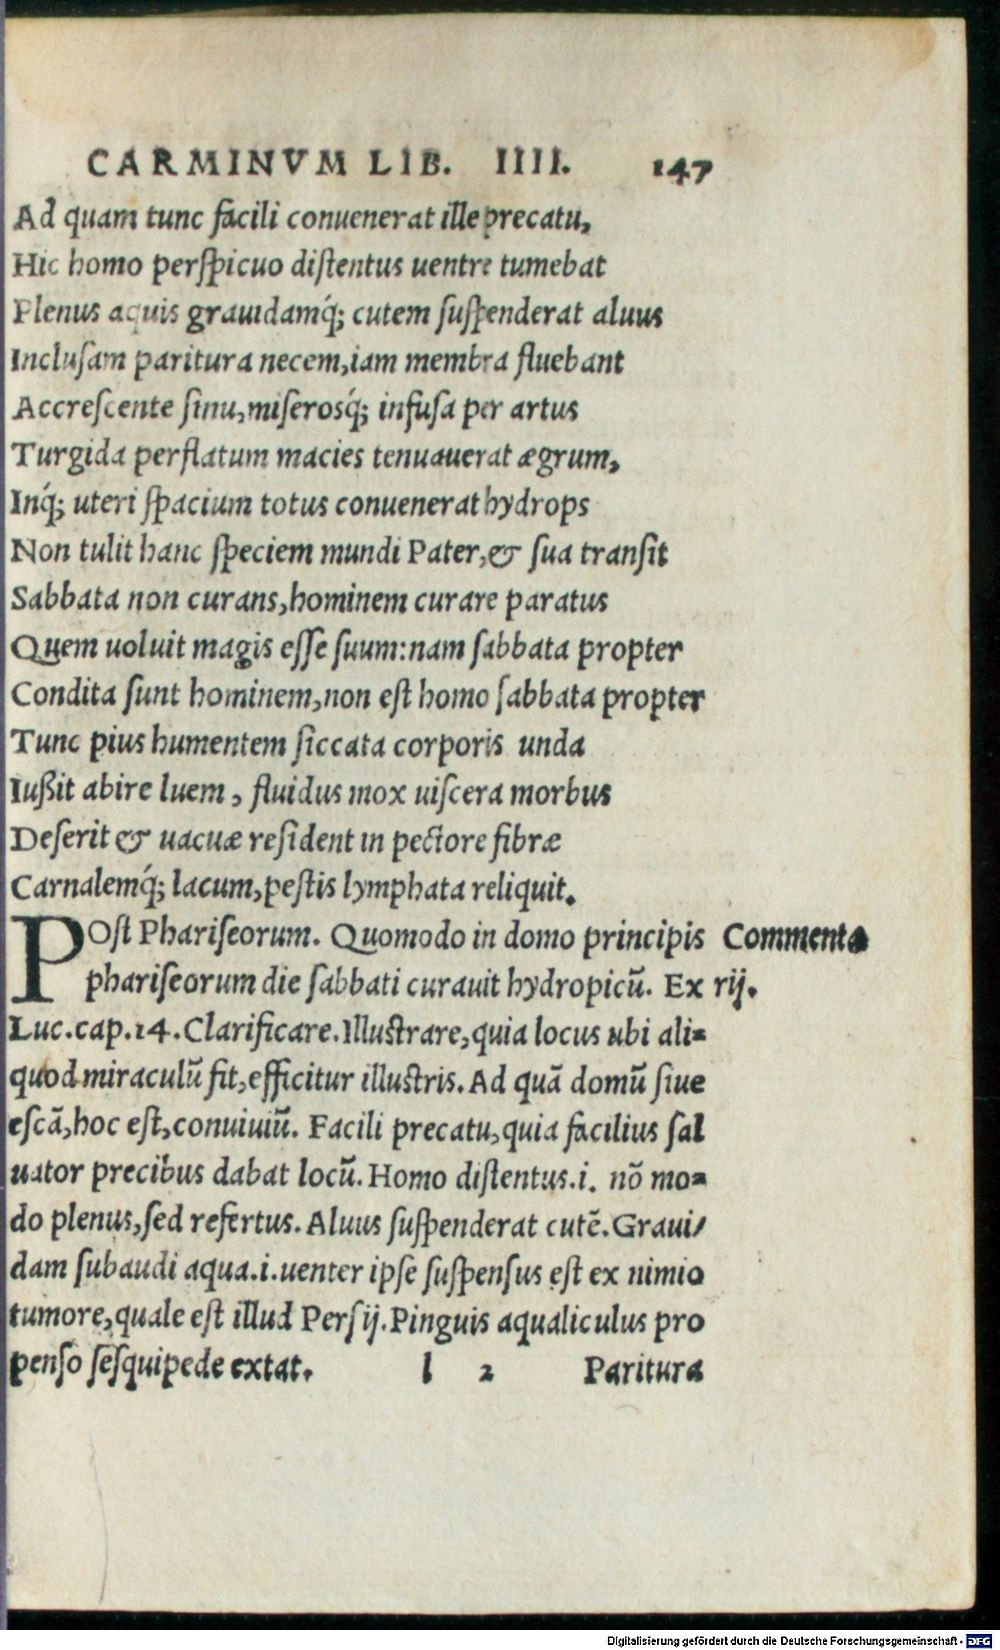 CARMINVM LIB. IIII. 147
Ad quam tunc facili conuenerat ille precatu,
Hic homo perspicuo distentus uentre tumebat
Plenus aquis grauidamq́; cutem suspenderat aluus
Inclusam paritura necem, iam membra fluebant
Accrescente sinu, miserosq́; infusa per artus
Turgida perflatum macies tenuauerat ægrum,
Inq́; uteri spacium totus conuenerat hydrops
Non tulit hanc speciem mundi Pater, & sua transit
Sabbata non curans, hominem curare paratus
Quem uoluit magis esse suum: nam sabbata propter
Condita sunt hominem, non est homo sabbata propter
Tunc pius humentem siccata corporis unda
Iußit abire luem, fluidus mox uiscera morbus
Deserit & uacuæ resident in pectore fibræ
Carnalemq́; lacum, pestis lymphata reliquit.
POst Phariseorum. Quomodo in domo principis Commenta
phariseorum die sabbati curauit hydropicū. Ex rij.
Luc. cap. 14. Clarificare. Illustrare, quia locus ubi ali=
quod miraculū fit, efficitur illustris. Ad quā domū siue
escā, hoc est, conuiuiū. Facili precatu, quia facilius sal
uator precibus dabat locū. Homo distentus .i. nō mo=
do plenus, sed refertus. Aluus suspenderat cutē. Graui/
dam subaudi aqua .i. uenter ipse suspensus est ex nimio
tumore, quale est illud Persij. Pinguis aqualiculus pro
penso sesquipede extat. l 2 Paritura
Digitalisierung gefördert durch die Deutsche Forschungsgemeinschaft - DFG